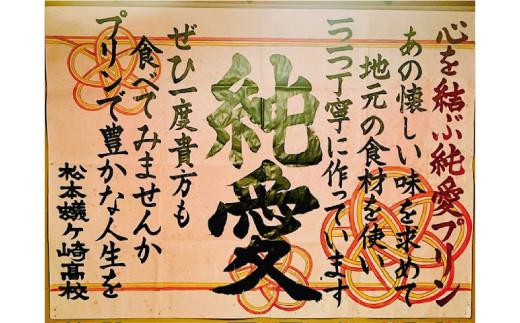 心を結ぶ純愛プリン
あの懐しい味を求めて
地元の食材を使い
一つ一つ丁寧に作っています
純愛
ぜひ一度貴方も
食べてみませんか
プリンで豊かな人生を
松本蟻ヶ崎高校